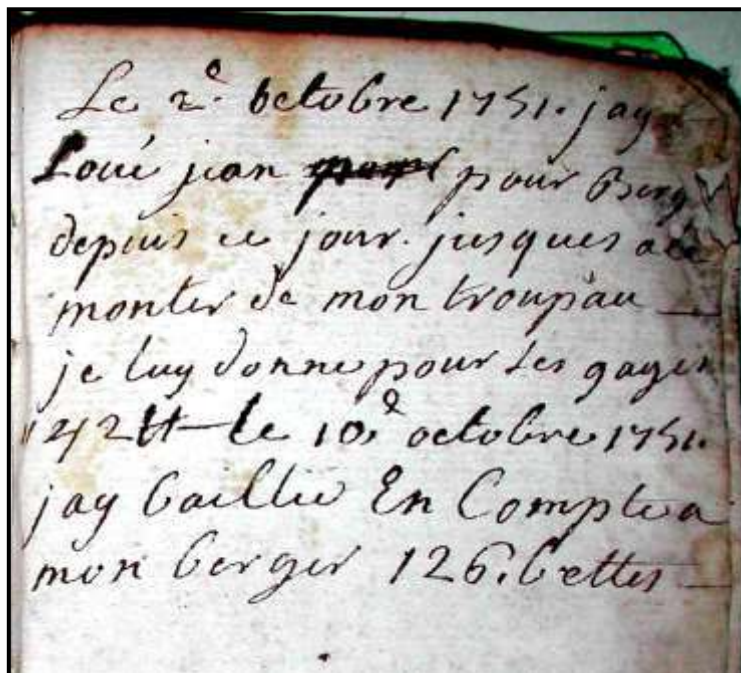 Le 2e. octobre 1751. jay
Loué jean pour Berg
depuis ce jour. jusques a
monter de mon troupau
je luy donne pour ses gages
42 tt le 10e octobre 1751.
jay baillié En Compte a
mon berger 126. bettes